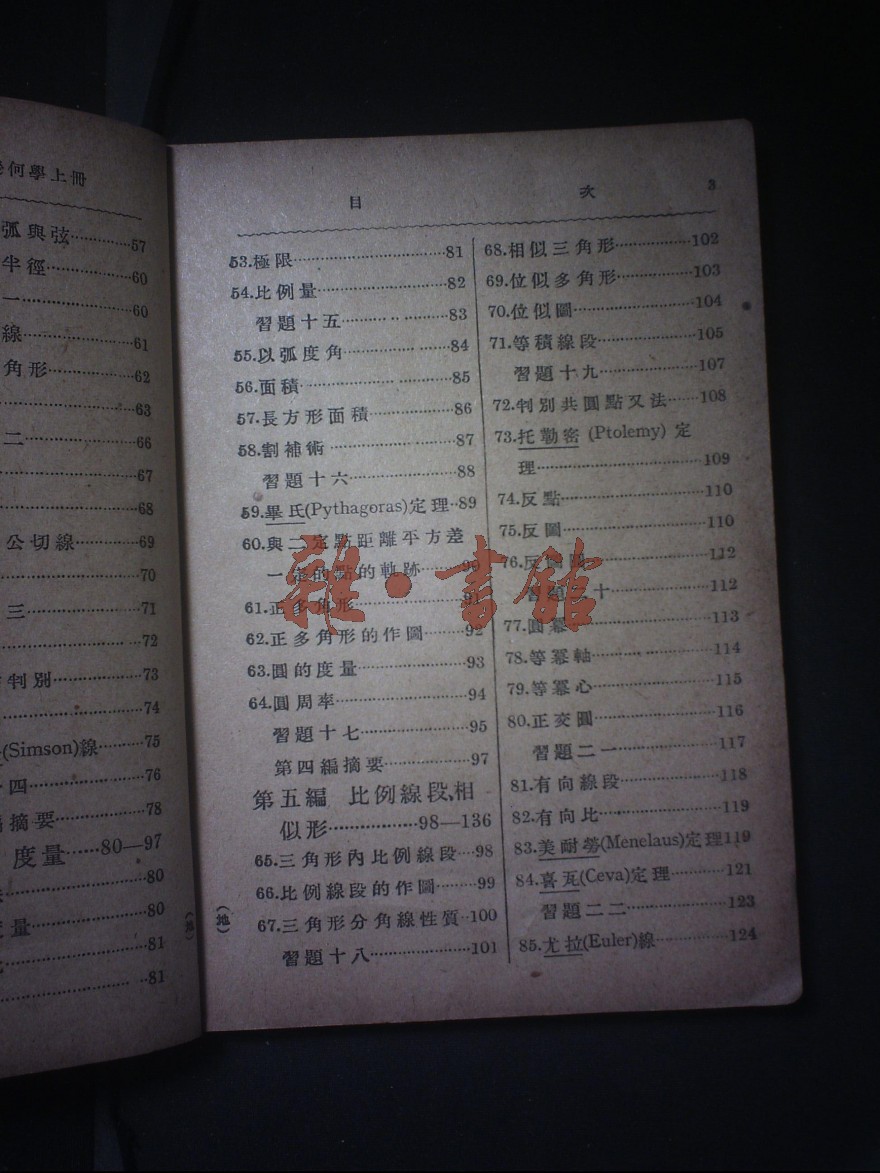 何學上冊
弧與弦…………57
半徑…………60
一…………60
線…………61
角形…………62
…………63
二…………66
…………67
…………68
公切線…………69
…………70
三…………71
…………72
判別…………73
…………74
(Simson)線…………75
四…………76
摘要…………78
度量……80—97
…………80
量…………80
…………81
…………81
目 次 3
53.極限…………81
54.比例量…………82
習題十五…………83
55.以弧度角…………84
56.面積…………85
57.長方形面積…………86
58.割補術…………87
習題十六…………88
59.畢氏(Pythagoras)定理…89
60.與二定點距離平方差
一定的點的軌跡……90
61.正多角形…………91
62.正多角形的作圖……92
63.圓的度量…………93
64.圓周率…………94
習題十七…………95
第四編摘要…………97
第五編 比例線段,相
似形…………98—136
65.三角形內比例線段…98
66.比例線段的作圖……99
67.三角形分角線性質…100
習題十八…………101
68.相似三角形…………102
69.位似多角形…………103
70.位似圖…………104
71.等積線段…………105
習題十九…………107
72.判別共圓點又法……108
73.托勒密 (Ptolemy) 定
理…………109
74.反點…………110
75.反圖…………110
76.反…………112
習題二十…………112
77.圓冪…………113
78.等冪軸…………114
79.等冪心…………115
80.正交圓…………116
習題二一…………117
81.有向線段…………118
82.有向比…………119
83.美耐勞(Menelaus)定理119
84.喜瓦(Ceva)定理……121
習題二二…………123
85.尤拉(Euler)線…………124
(地)
(地)
雜·書館